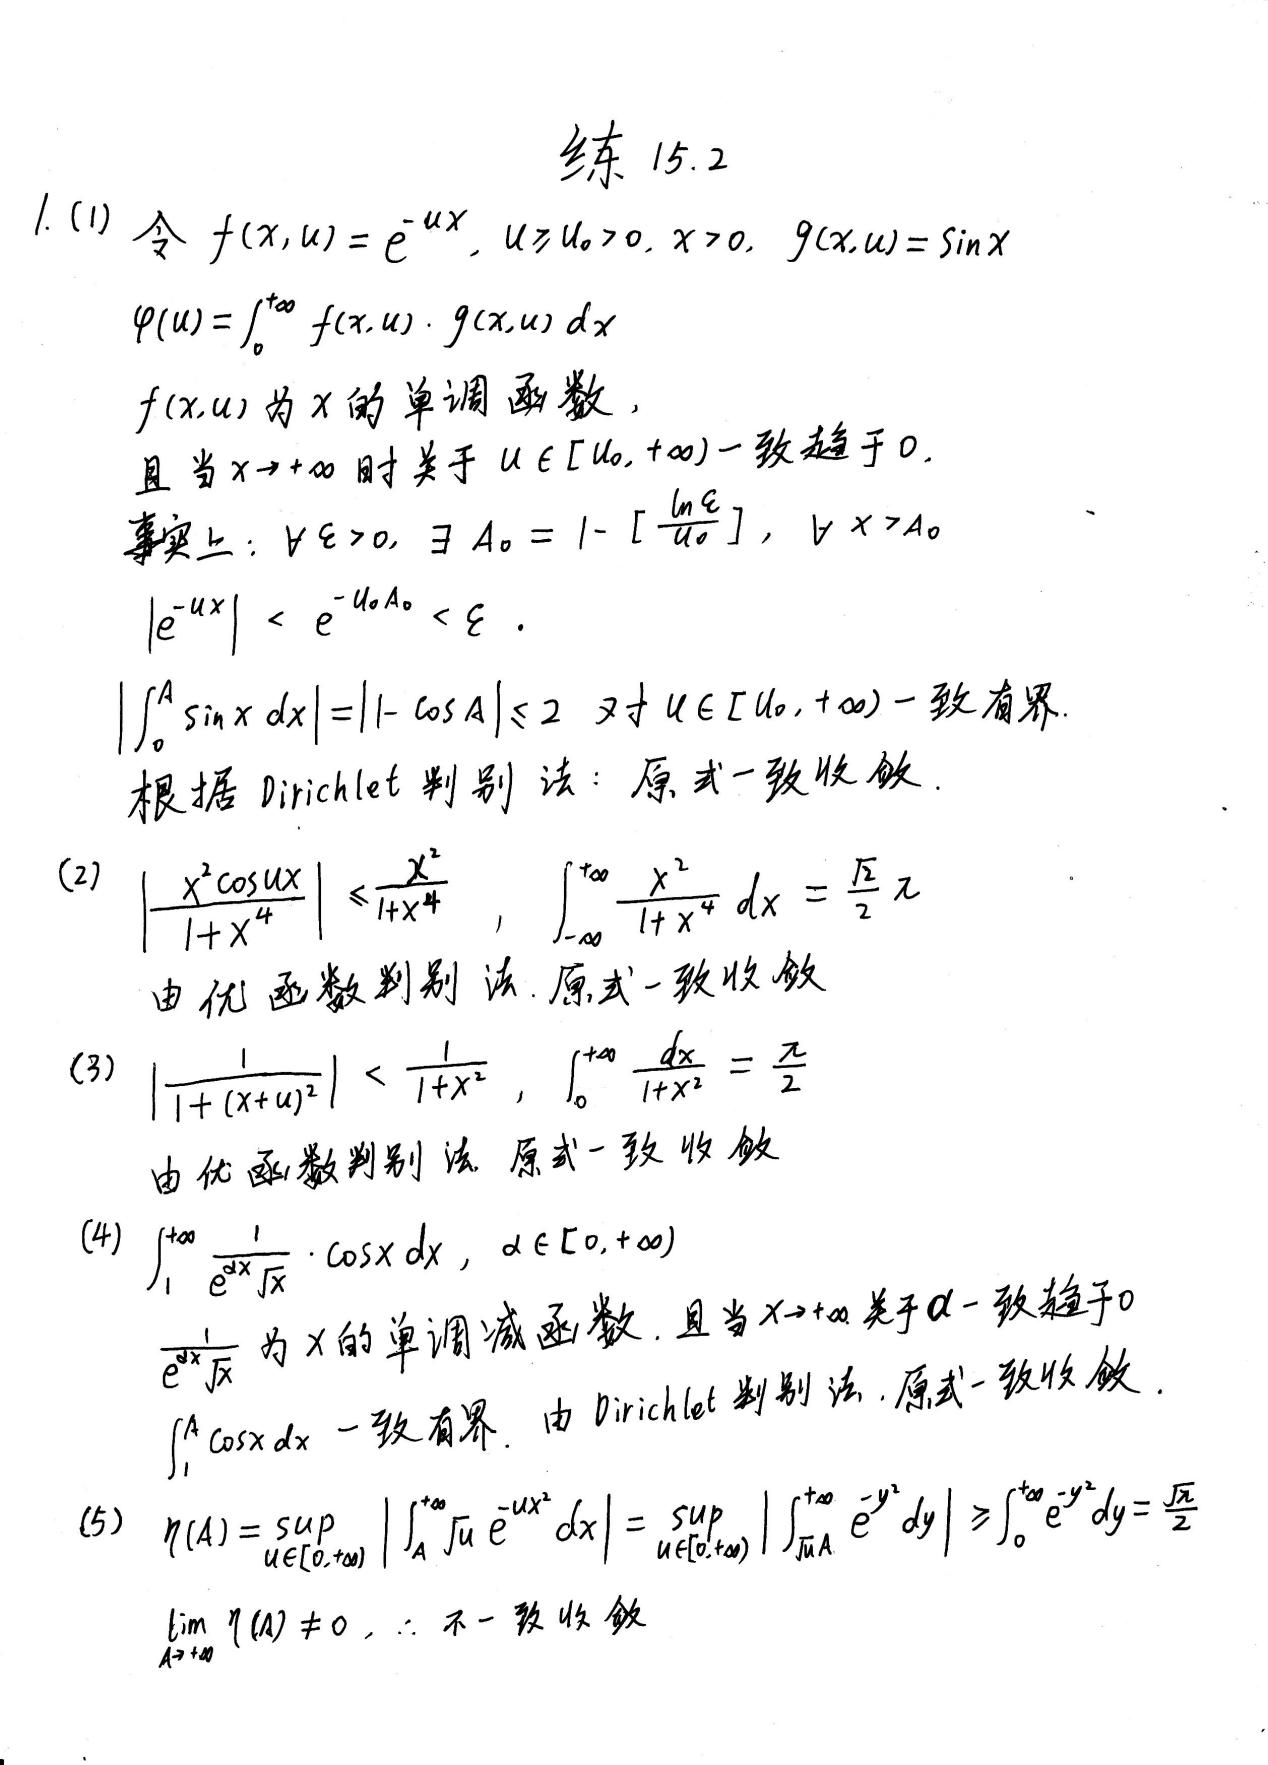 练 15.2
1. (1) 令 f(x,u) = e^{-ux}, u ≥ u₀ > 0, x > 0, g(x,u) = sin x
φ(u) = ∫_0^{+∞} f(x,u) · g(x,u) dx
f(x,u) 为 x 的单调函数,
且当 x→+∞ 时关于 u ∈ [u₀, +∞) 一致趋于 0.
事实上: ∀ ε > 0, ∃ A₀ = 1 - [ln ε / u₀], ∀ x > A₀
|e^{-ux}| < e^{-u₀A₀} < ε .
|∫_0^A sin x dx| = |1 - cos A| ≤ 2 对 u ∈ [u₀, +∞) 一致有界.
根据 Dirichlet 判别法: 原式一致收敛.
(2) |x² cos ux / (1+x⁴)| ≤ x² / (1+x⁴) , ∫_{-∞}^{+∞} x² / (1+x⁴) dx = (√2/2) π
由优函数判别法. 原式一致收敛
(3) |1 / (1+(x+u)²)| < 1 / (1+x²) , ∫_0^{+∞} dx / (1+x²) = π/2
由优函数判别法. 原式一致收敛
(4) ∫_1^{+∞} 1 / (e^{αx} √x) · cos x dx , α ∈ [0, +∞)
1 / (e^{αx} √x) 为 x 的单调减函数. 且当 x→+∞ 关于 α 一致趋于 0
∫_1^A cos x dx 一致有界. 由 Dirichlet 判别法. 原式一致收敛.
(5) η(A) = sup_{u∈[0,+∞)} |∫_A^{+∞} √u e^{-ux²} dx| = sup_{u∈[0,+∞)} |∫_{√u A}^{+∞} e^{-y²} dy| ≥ ∫_0^{+∞} e^{-y²} dy = √π / 2
lim_{A→+∞} η(A) ≠ 0 , ∴ 不一致收敛